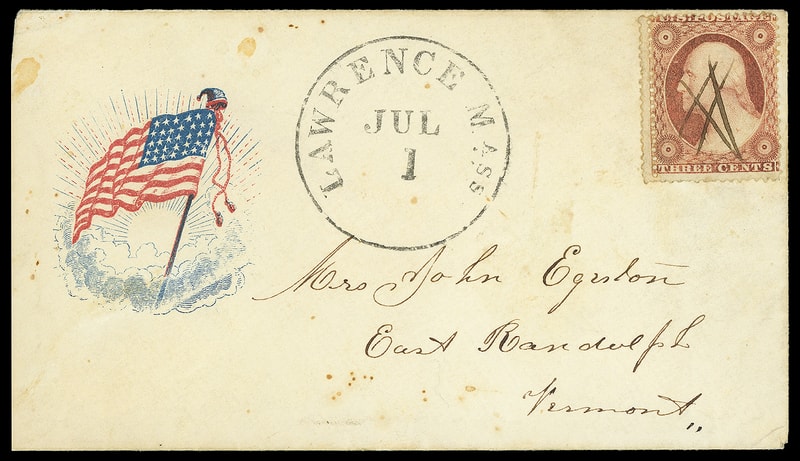 LAWRENCE MASS
JUL
1
U.S. POSTAGE
THREE CENTS
Mrs John Egerton
East Randolph
Vermont,,